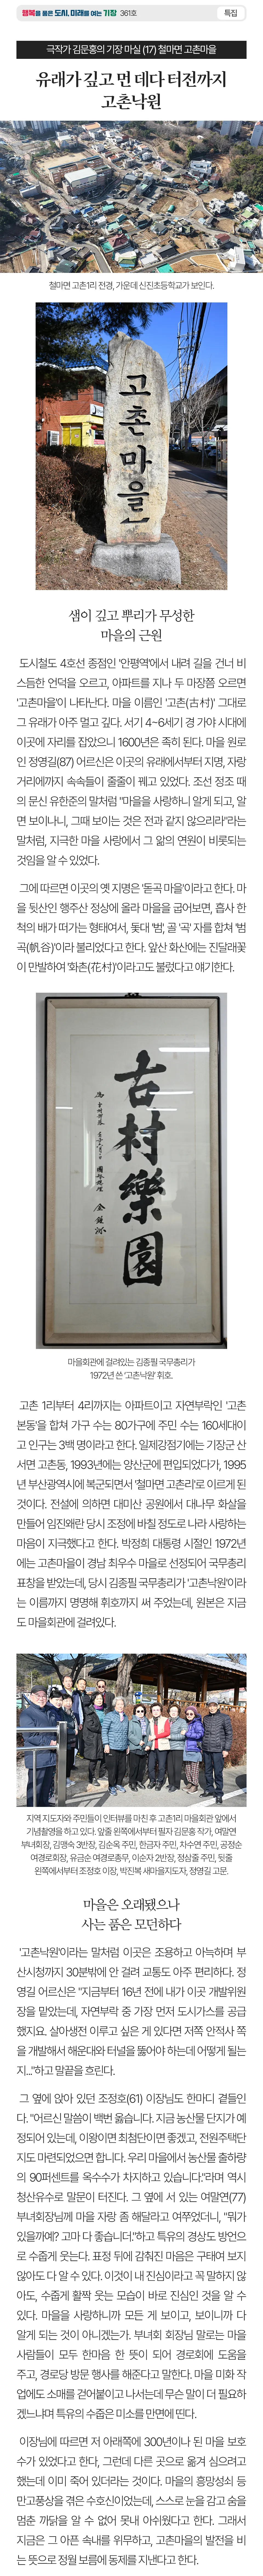 행복을 품은 도시, 미래를 여는 기장 361호
특집
극작가 김문홍의 기장 마실 (17) 철마면 고촌마을
유래가 깊고 먼 데다 터전까지
고촌낙원
철마면 고촌1리 전경, 가운데 신진초등학교가 보인다.
고촌마을
샘이 깊고 뿌리가 무성한
마을의 근원
도시철도 4호선 종점인 '안평역'에서 내려 길을 건너 비
스듬한 언덕을 오르고, 아파트를 지나 두 마장쯤 오르면
'고촌마을'이 나타난다. 마을 이름인 '고촌(古村)' 그대로
그 유래가 아주 멀고 깊다. 서기 4~6세기 경 가야 시대에
이곳에 자리를 잡았으니 1600년은 족히 된다. 마을 원로
인 정영길(87) 어르신은 이곳의 유래에서부터 지명, 자랑
거리에까지 속속들이 줄줄이 꿰고 있었다. 조선 정조 때
의 문신 유한준의 말처럼 "마을을 사랑하니 알게 되고, 알
면 보이나니, 그때 보이는 것은 전과 같지 않으리라"라는
말처럼, 지극한 마을 사랑에서 그 앎의 연원이 비롯되는
것임을 알 수 있었다.
그에 따르면 이곳의 옛 지명은 '돋곡 마을'이라고 한다. 마
을 뒷산인 행주산 정상에 올라 마을을 굽어보면, 흡사 한
척의 배가 떠가는 형태여서, 돛대 '범', 골 '곡' 자를 합쳐 '범
곡(帆谷)'이라 불리었다고 한다. 앞산 화산에는 진달래꽃
이 만발하여 '화촌(花村)'이라고도 불렀다고 얘기한다.
古村樂園
마을회관에 걸려있는 김종필 국무총리가
1972년 쓴 '고촌낙원' 휘호.
고촌 1리부터 4리까지는 아파트이고 자연부락인 '고촌
본동'을 합쳐 가구 수는 80가구에 주민 수는 160세대이
고 인구는 3백 명이라고 한다. 일제강점기에는 기장군 산
서면 고촌동, 1993년에는 양산군에 편입되었다가, 1995
년 부산광역시에 복군되면서 '철마면 고촌리'로 이르게 된
것이다. 전설에 의하면 대미산 공원에서 대나무 화살을
만들어 임진왜란 당시 조정에 바칠 정도로 나라 사랑하는
마음이 지극했다고 한다. 박정희 대통령 시절인 1972년
에는 고촌마을이 경남 최우수 마을로 선정되어 국무총리
표창을 받았는데, 당시 김종필 국무총리가 '고촌낙원'이라
는 이름까지 명명해 휘호까지 써 주었는데, 원본은 지금
도 마을회관에 걸려있다.
지역 지도자와 주민들이 인터뷰를 마친 후 고촌1리 마을회관 앞에서
기념촬영을 하고 있다. 앞줄 왼쪽에서부터 필자 김문홍 작가, 여말연
부녀회장, 김맹숙 3반장, 김순옥 주민, 한금자 주민, 차수연 주민, 공정순
여경로회장, 유금순 여경로총무, 이순자 2반장, 정삼줄 주민, 뒷줄
왼쪽에서부터 조정호 이장, 박진복 새마을지도자, 정영길 고문.
마을은 오래됐으나
사는 품은 모던하다
'고촌낙원'이라는 말처럼 이곳은 조용하고 아늑하며 부
산시청까지 30분밖에 안 걸려 교통도 아주 편리하다. 정
영길 어르신은 "지금부터 16년 전에 내가 이곳 개발위원
장을 맡았는데, 자연부락 중 가장 먼저 도시가스를 공급
했지요. 살아생전 이루고 싶은 게 있다면 저쪽 안적사 쪽
을 개발해서 해운대와 터널을 뚫어야 하는데 어떻게 될는
지..."하고 말끝을 흐린다.
그 옆에 앉아 있던 조정호(61) 이장님도 한마디 곁들인
다. "어르신 말씀이 백번 옳습니다. 지금 농산물 단지가 예
정되어 있는데, 이왕이면 최첨단이면 좋겠고, 전원주택단
지도 마련되었으면 합니다. 우리 마을에서 농산물 출하량
의 90퍼센트를 옥수수가 차지하고 있습니다."라며 역시
청산유수로 말문이 터진다. 그 옆에 서 있는 여말연(77)
부녀회장님께 마을 자랑 좀 해달라고 여쭈었더니, "뭐가
있을까예? 고마 다 좋습니더."하고 특유의 경상도 방언으
로 수줍게 웃는다. 표정 뒤에 감춰진 마음은 구태여 보지
않아도 다 알 수 있다. 이것이 내 진심이라고 꼭 말하지 않
아도, 수줍게 활짝 웃는 모습이 바로 진심인 것을 알 수
있다. 마을을 사랑하니까 모든 게 보이고, 보이니까 다
알게 되는 것이 아니겠는가. 부녀회 회장님 말로는 마을
사람들이 모두 한마음 한 뜻이 되어 경로회에 도움을
주고, 경로당 방문 행사를 해준다고 말한다. 마을 미화 작
업에도 소매를 걷어붙이고 나서는데 무슨 말이 더 필요하
겠느냐며 특유의 수줍은 미소를 만면에 띤다.
이장님에 따르면 저 아래쪽에 300년이나 된 마을 보호
수가 있었다고 한다, 그런데 다른 곳으로 옮겨 심으려고
했는데 이미 죽어 있더라는 것이다. 마을의 흥망성쇠 등
만고풍상을 겪은 수호신이었는데, 스스로 눈을 감고 숨을
멈춘 까닭을 알 수 없어 못내 아쉬웠다고 한다. 그래서
지금은 그 아픈 속내를 위무하고, 고촌마을의 발전을 비
는 뜻으로 정월 보름에 동제를 지낸다고 한다.